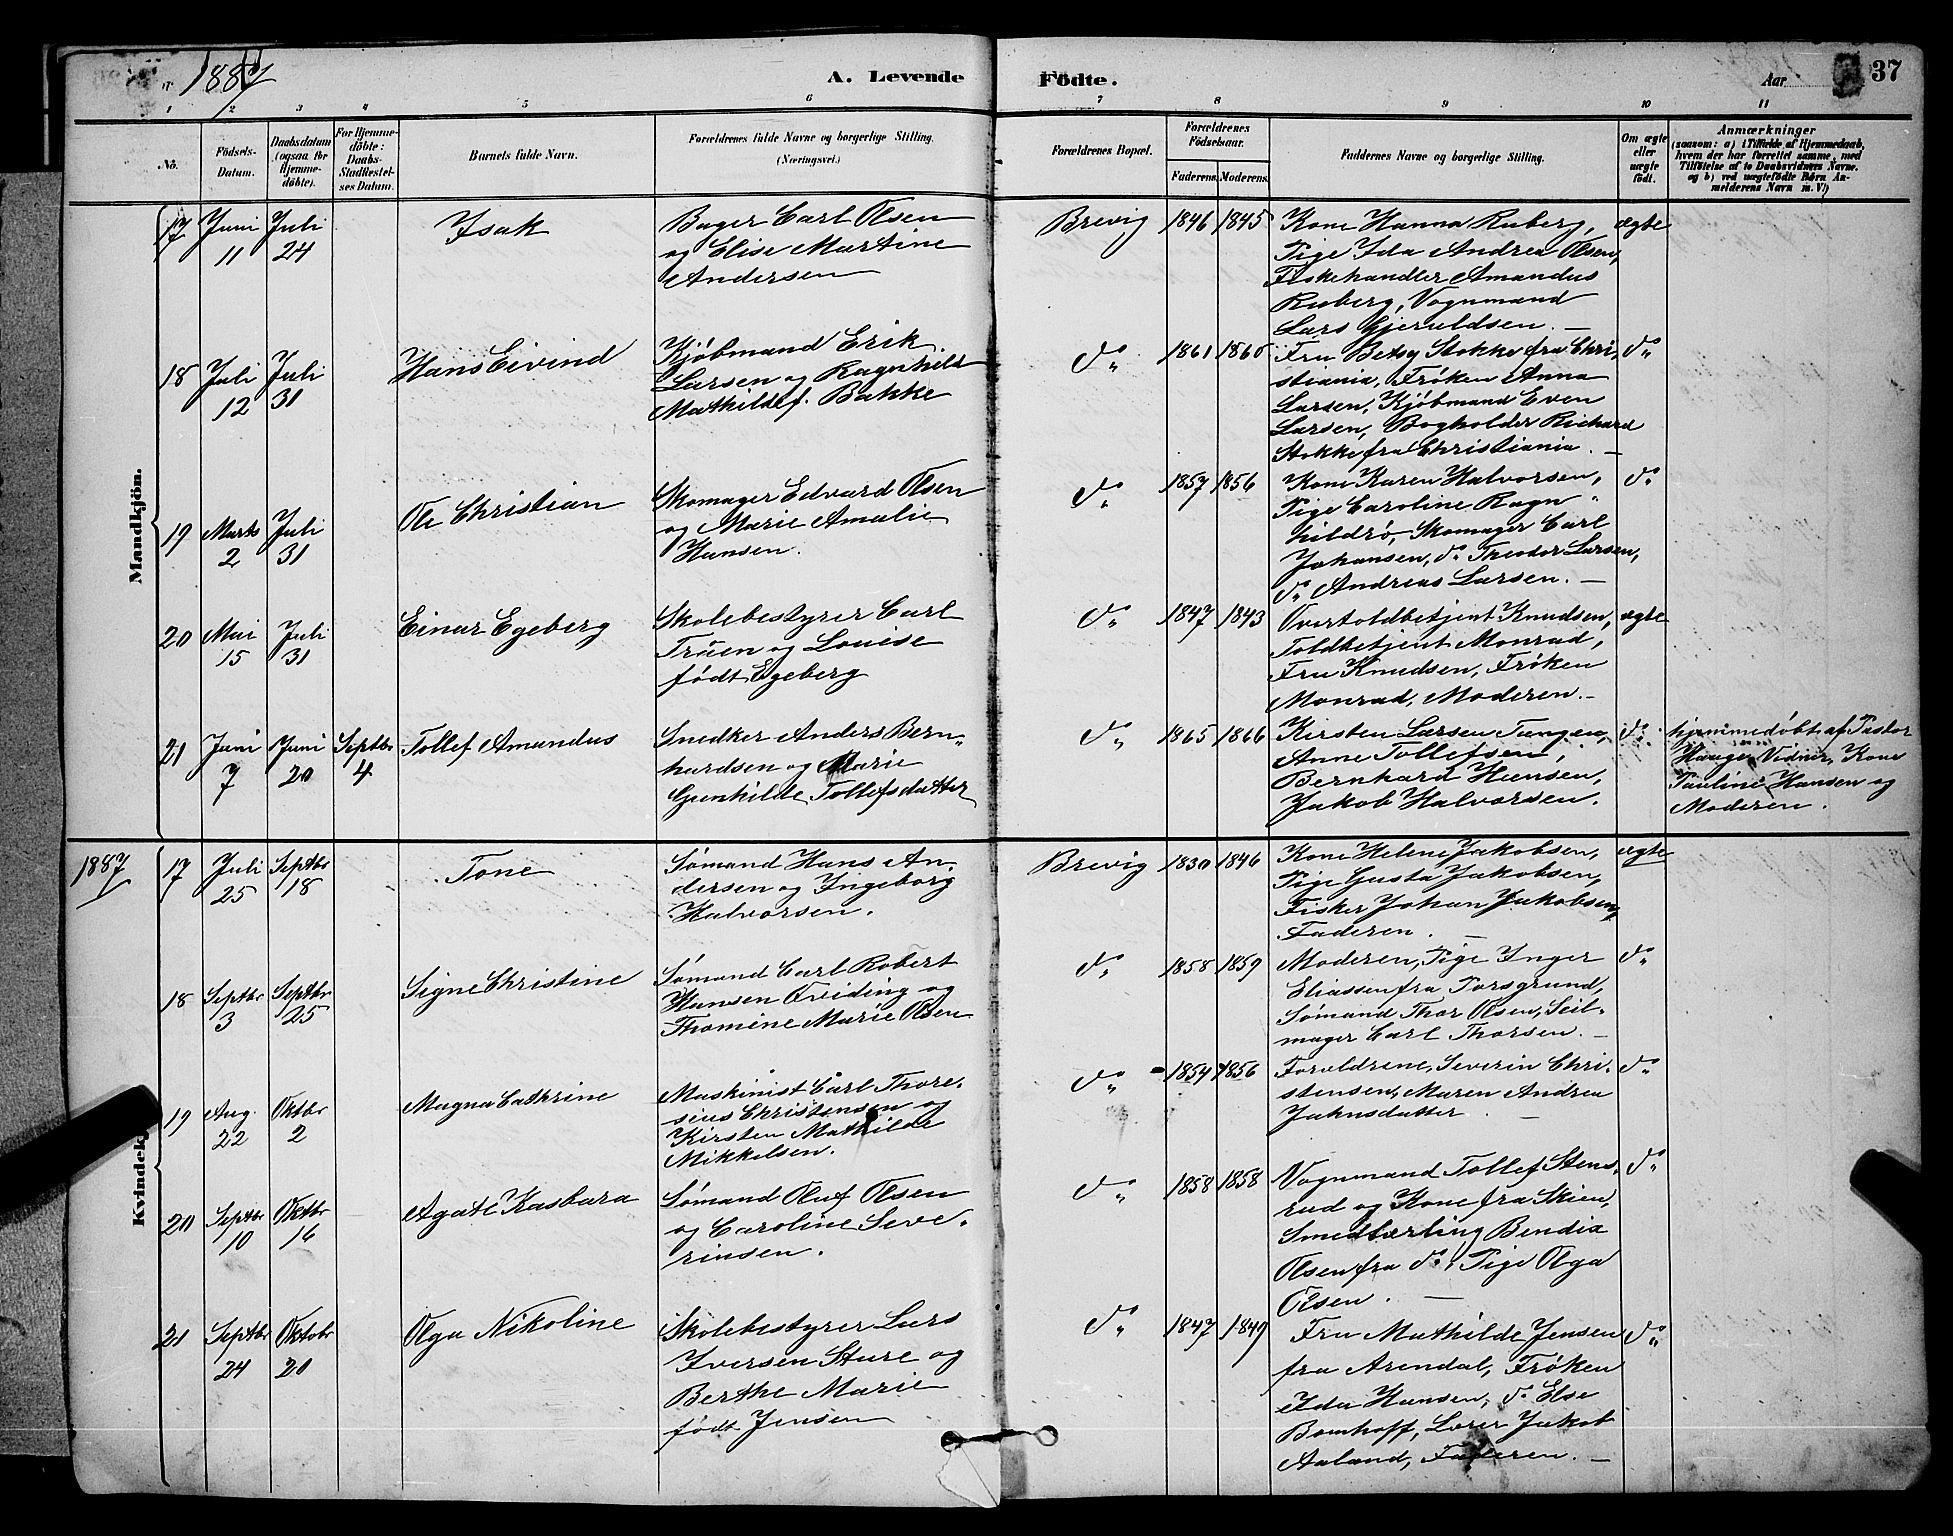 1887
A. Levende Födte.
Aar
37
1 2 3 4 5 6 7 8 9 10 11
No.
Födsels-
Datum.
Daabsdatum
(ogsaa for
Hjemme-
döbte).
For Hjemme-
döbte:
Daabs-
Stadfæstel-
ses Datum.
Barnets fulde Navn.
Forældrenes fulde Navne og borgerlige Stilling.
(Næringsvei.)
Forældrenes Bopæl.
Forældrenes
Födselsaar.
Faderens. Moderens.
Faddernes Navne og borgerlige Stilling.
Om ægte
eller
uægte
födt.
Anmærkninger
(saasom: a) i Tilfælde af Hjemmedaab,
hvem der har forrettet samme, med
Tilföielse af to Daabsvidners Navne.
og b) ved uægtefödte Børn An-
melderens Navn m. V.)
Mandkjön.
17 Juni 11 Juli 24
Isak
Bager Carl Olsen
og Elise Martine
Andersen
Brevig 1846 1845
Kone Hanna Ruberg,
Pige Ida Andrea Olsen,
Fiskehandler Amandus
Ruberg, Vognmand
Lars Gjeruldsen. —
ægte
18 Juli 12 Juli 31
Hans Eivind
Kjöbmand Erik
Larsen og Ragnhild
Mathilde f. Bakke
do 1861 1860
Fru Betsy Stokke fra Chri-
stiania, Frøken Anna
Larsen, Kjöbmand Even
Larsen, Bogholder Richard
Stokke fra Christiania. —
do
19 Marts 2 Juli 31
Ole Christian
Skomager Edvard Olsen
og Marie Amalie
Hansen.
do 1857 1856
Kone Karen Halvorsen,
Pige Caroline Ragn-
hildrø, Skomager Carl
Johansen, do Theodor Larsen,
do Andreas Larsen. —
do
20 Mai 15 Juli 31
Einar Egeberg
Skolebestyrer Carl
Tråen og Louise
født Egeberg
do 1847 1843
Overtoldbetjent Knudsen,
Toldbetjent Monrad,
Fru Knudsen, Frøken
Monrad, Moderen. —
ægte
21 Juni 7 Juni 20 Septbr 4
Tollef Amandus
Snedker Anders Bern-
hardsen og Marie
Gunhilde Tollefsdatter
do 1865 1866
Kirsten Larsen Tangen,
Anne Tollefsen,
Bernhard Hansen,
Jakob Halvorsen.
do
hjemmedøbt af Pastor
Hauge, Vidner, Kone
Pauline Hansen og
Moderen.
1887
Kvindek
17 Juli 25 Septbr 18
Tone
Sömand Hans An-
dersen og Ingeborg
Halvorsen.
Brevig 1830 1846
Kone Helene Jakobsen,
Pige Gusta Jakobsen,
Fisker Johan Jakobsen,
Faderen. —
ægte
18 Septbr 3 Septbr 25
Signe Christine
Sömand Carl Robert
Hansen Örviding og
Thomine Marie Olsen
do 1858 1859
Moderen, Pige Inger
Eliassen fra Porsgrund,
Sömand Thor Olsen, Seil-
mager Carl Thorsen. —
do
19 Aug. 22 Oktbr 2
Magna Cathrine
Maskinist Carl Thore-
sius Christensen og
Kirsten Mathilde
Mikkelsen.
do 1854 1856
Forældrene, Severin Chri-
stensen, Maren Andrea
Jahnsdatter. —
do
20 Septbr 10 Oktbr 16
Agate Kasbara
Sömand Oluf Olsen
og Caroline Seve-
rinsen.
do 1858 1858
Vognmand Tollef Stens-
rud og Kone fra Skien,
Smedlærling Bendix
Olsen fra do, Pige Olga
Olsen. —
do
21 Septbr 24 Oktobr 20
Olga Nikoline
Skolebestyrer Lars
Iversen Sture og
Berthe Marie
født Jensen
do 1847 1849
Fru Mathilde Jensen
fra Arendal, Frøken
Ida Hansen, do Else
Bomhoff, Lærer Jakob
Aaland, Faderen. —
do